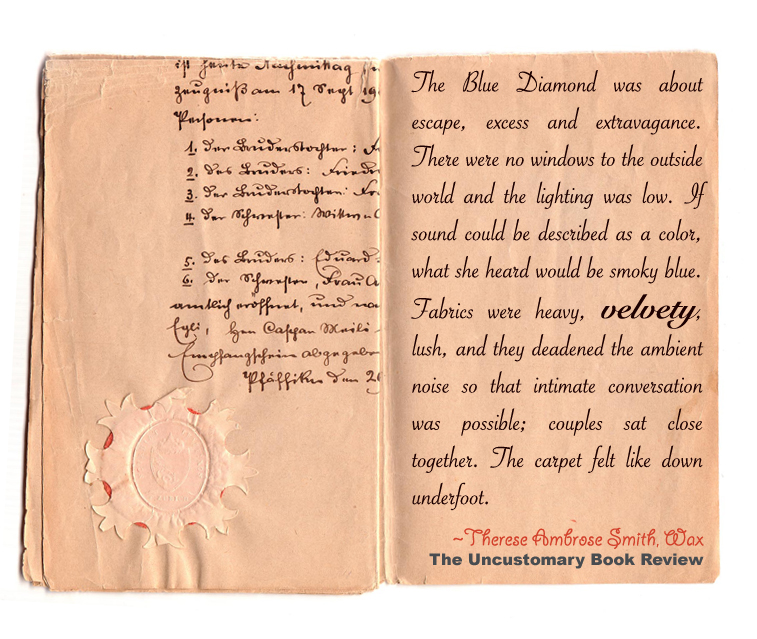 ist heute Nachmittag
Zeugniß am 17 Sept 19
Personen:
1. der Bruderstochter:
2. des Bruders: Friedr
3. der Bruderstochter:
4. der Schwester: Wittwe
5. des Bruders: Eduard
6. der Schwester, Frau
amtlich eröffnet, und
Egli, Hrn Caspar Meili
Empfangschein abgegebe
Pfäffikon den 2
The Blue Diamond was about
escape, excess and extravagance.
There were no windows to the outside
world and the lighting was low. If
sound could be described as a color,
what she heard would be smoky blue.
Fabrics were heavy, velvety,
lush, and they deadened the ambient
noise so that intimate conversation
was possible; couples sat close
together. The carpet felt like down
underfoot.
~Therese Ambrose Smith, Wax
The Uncustomary Book Review